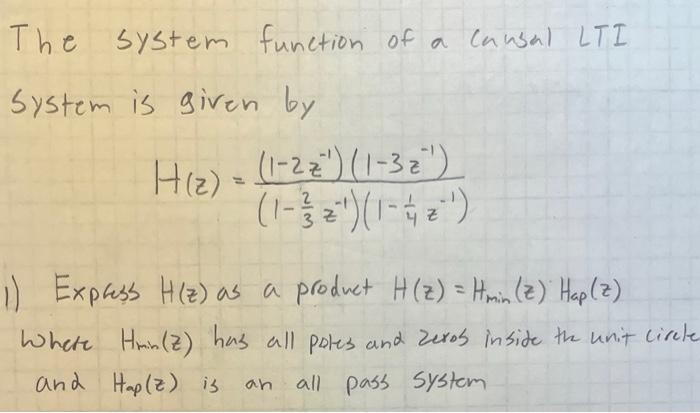 The system function of a causal LTI
system is given by
H(z) = (1-2z⁻¹)(1-3z⁻¹) / (1-⅔z⁻¹)(1-¼z⁻¹)
1) Express H(z) as a product H(z) = Hmin(z) Hap(z)
where Hmin(z) has all poles and zeros inside the unit circle
and Hap(z) is an all pass system